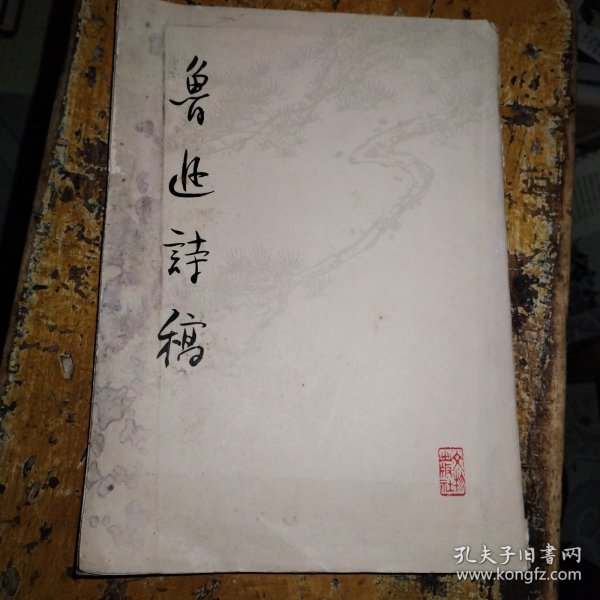 鲁迅詩稿
文物出版社
孔夫子旧書网
www.kongfz.com